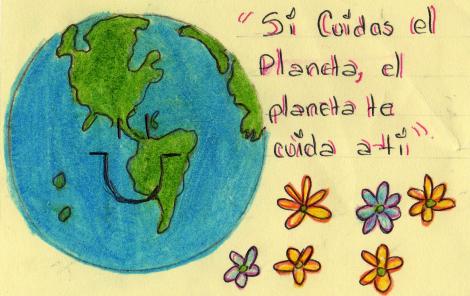 "Si Cuidas el
Planeta, el
planeta te
cuida a ti".